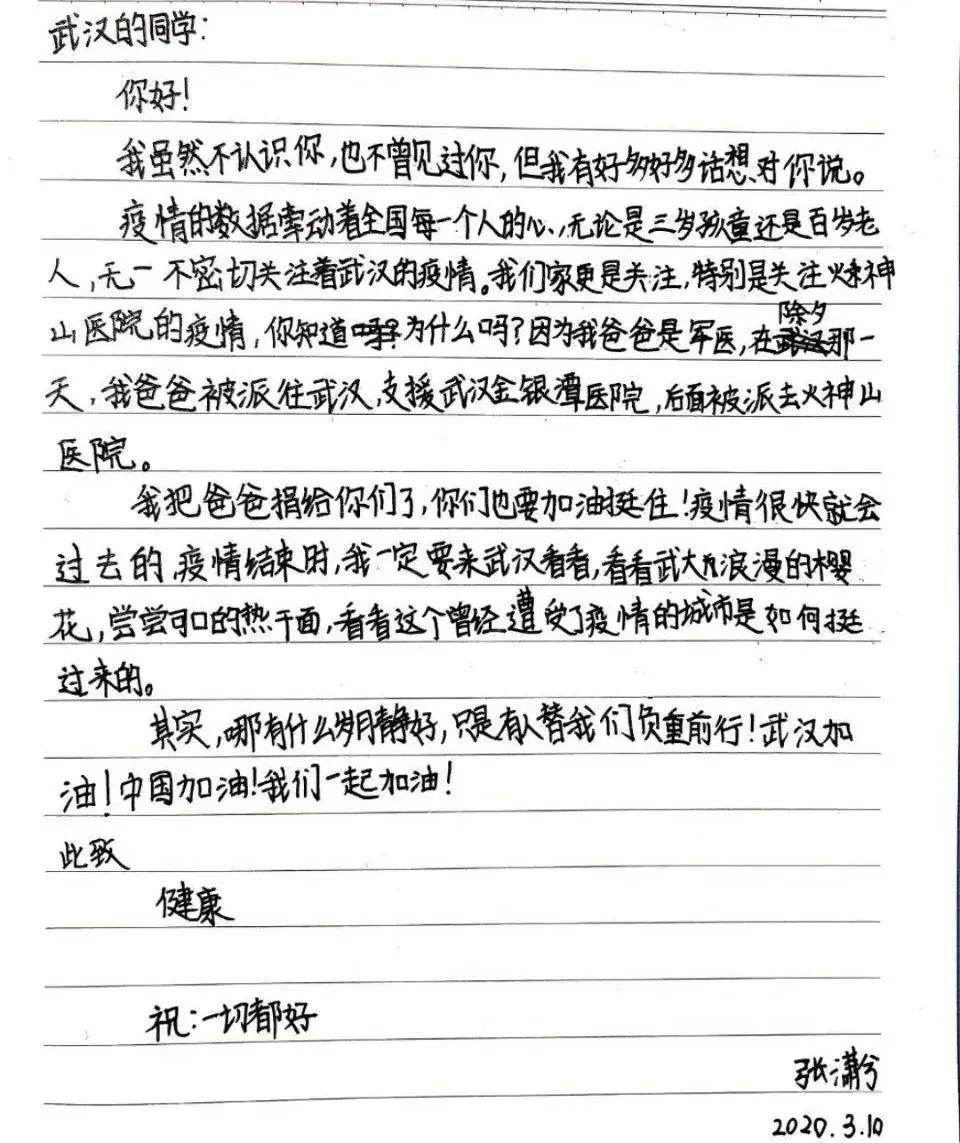 武汉的同学:
你好!
我虽然不认识你,也不曾见过你,但我有好多好多话想对你说。
疫情的数据牵动着全国每一个人的心,无论是三岁孩童还是百岁老
人,无一不密切关注着武汉的疫情。我们家更是关注,特别是关注火神
山医院的疫情,你知道为什么吗?因为我爸爸是军医,在除夕那一
天,我爸爸被派往武汉,支援武汉金银潭医院,后面被派去火神山
医院。
我把爸爸捐给你们了,你们也要加油挺住!疫情很快就会
过去的,疫情结束时,我一定要来武汉看看,看看武大浪漫的樱
花,尝尝可口的热干面,看看这个曾经遭受了疫情的城市是如何挺
过来的。
其实,哪有什么岁月静好,只是有人替我们负重前行!武汉加
油!中国加油!我们一起加油!
此致
健康
祝:一切都好
张潇兮
2020.3.10